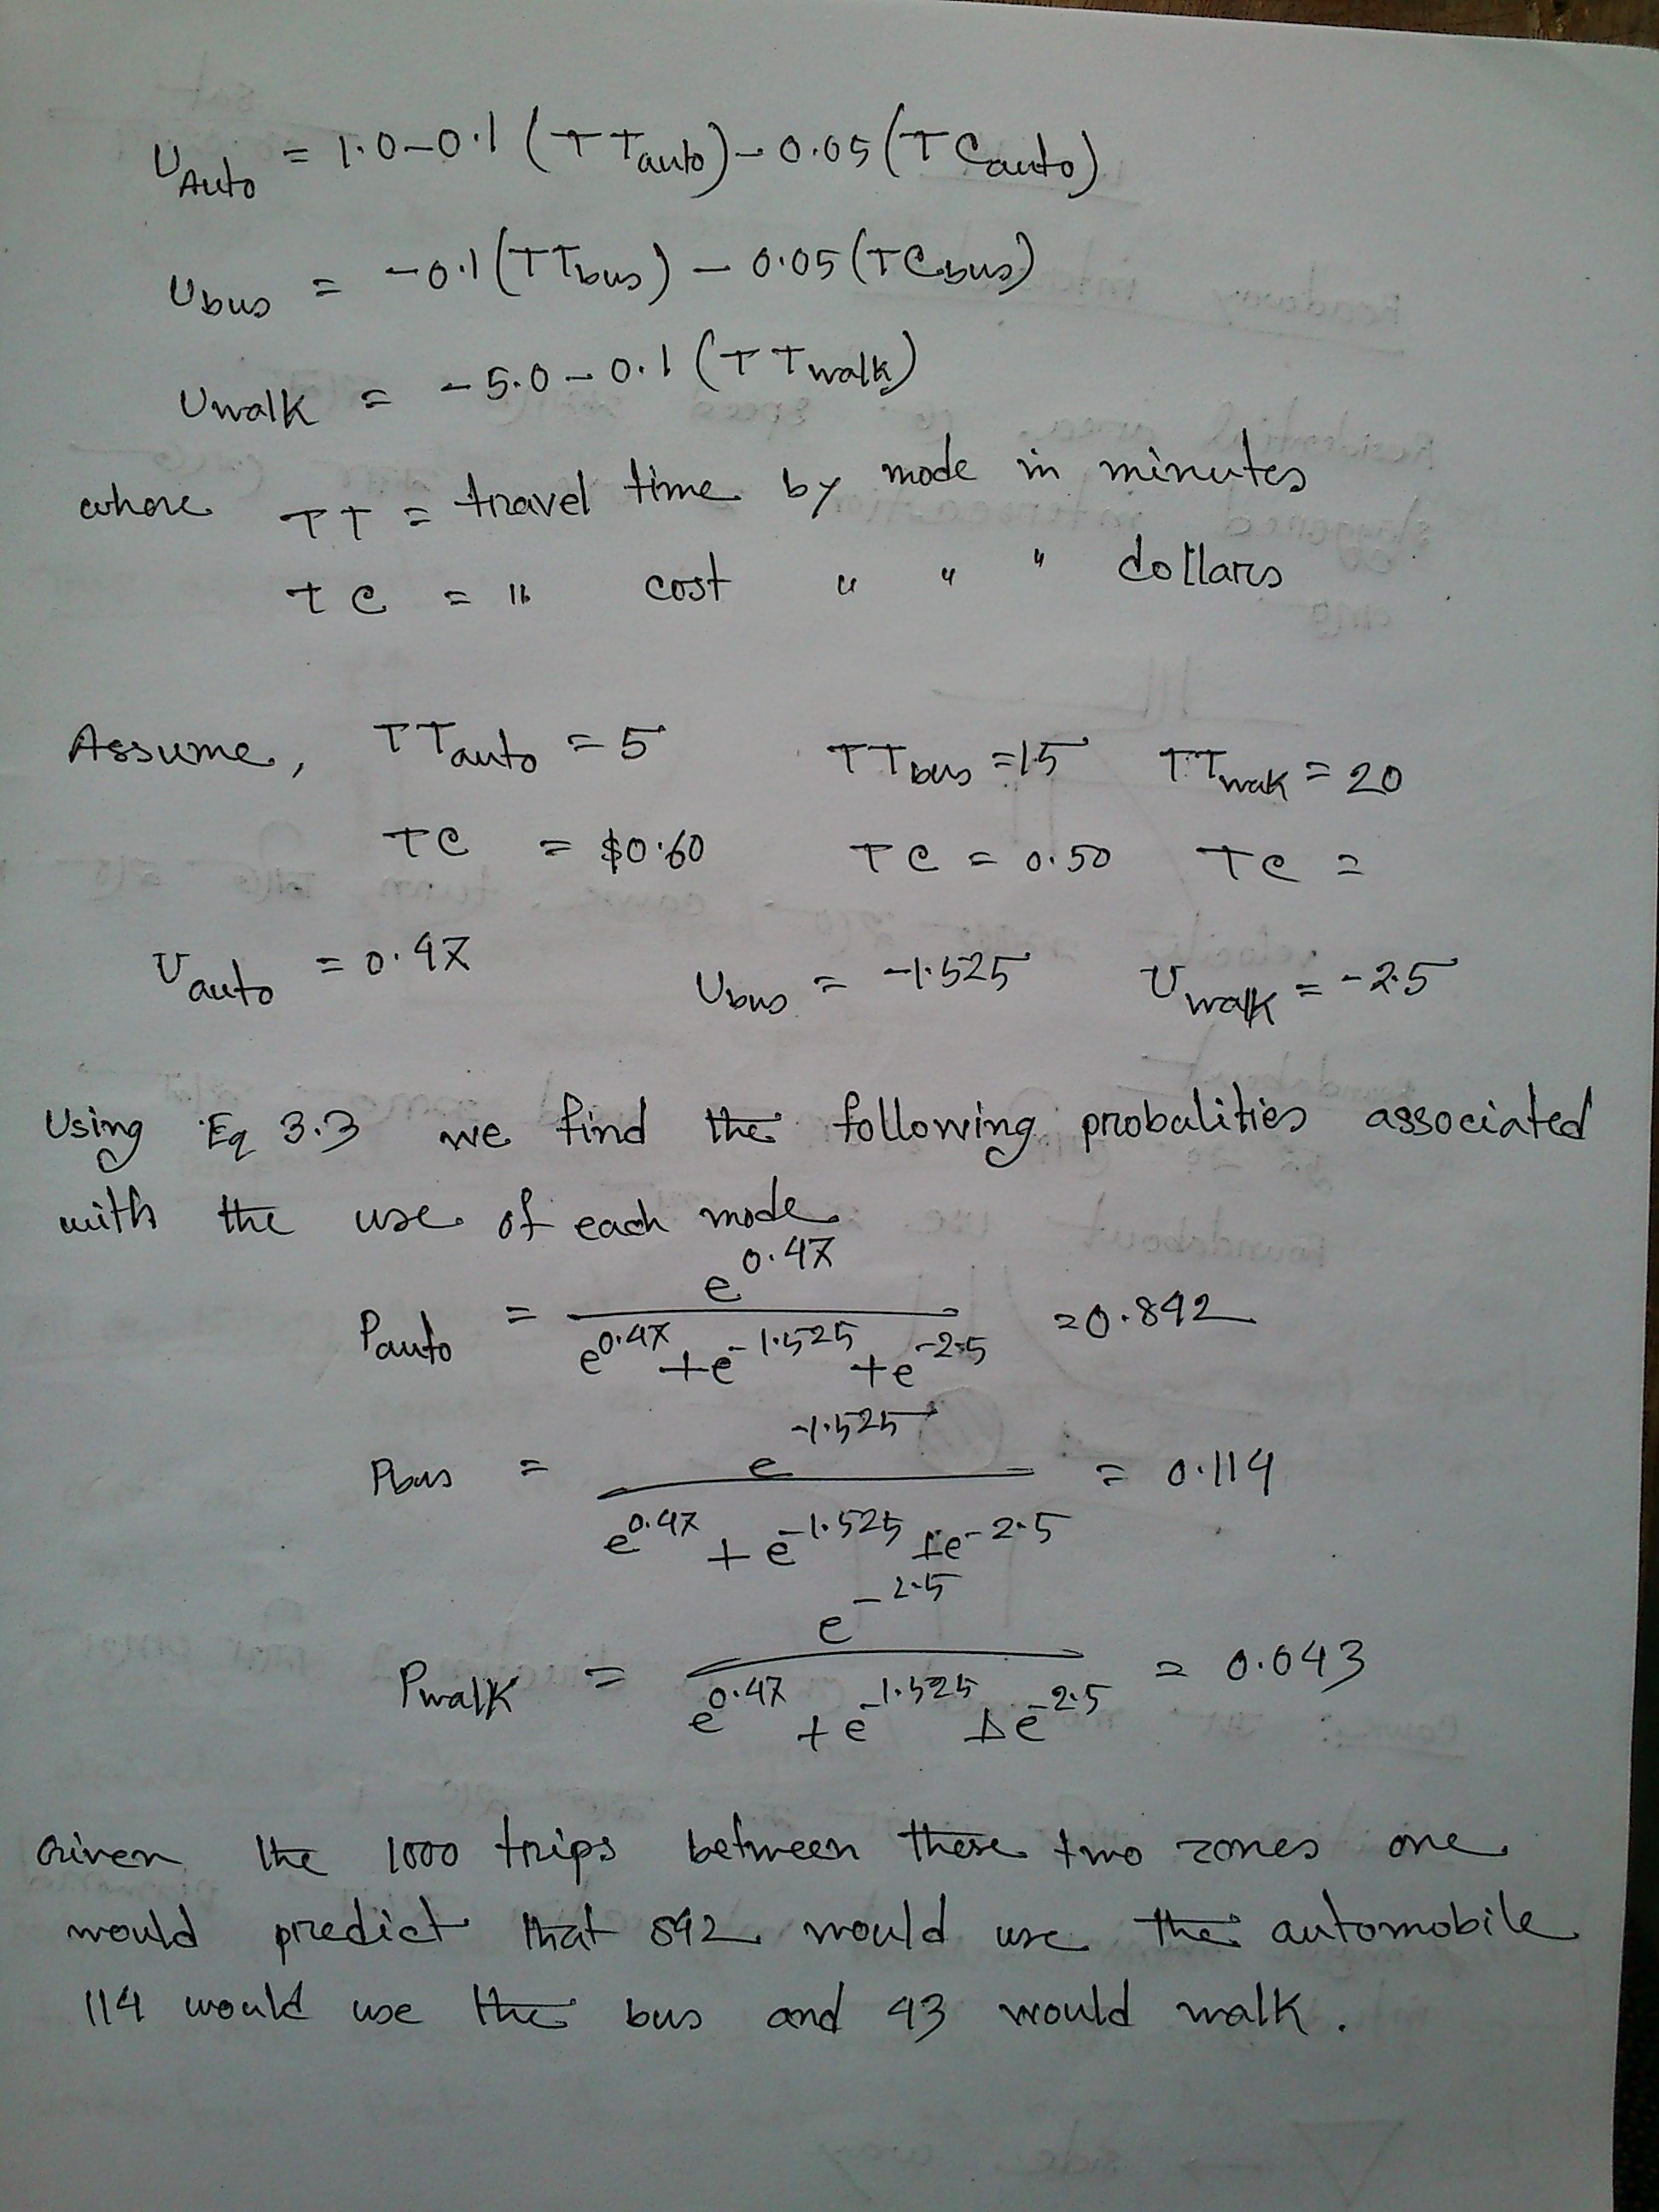 U_Auto = 1.0-0.1 (TT_auto) - 0.05 (TC_auto)
U_bus = -0.1 (TT_bus) - 0.05 (TC_bus)
U_walk = -5.0 - 0.1 (TT_walk)
where TT = travel time by mode in minutes
TC = " cost " " " dollars
Assume, TT_auto = 5 TT_bus = 15 TT_wak = 20
TC = $0.60 TC = 0.50 TC =
U_auto = 0.47 U_bus = -1.525 U_walk = -2.5
Using Eq 3.3 we find the following probalities associated
with the use of each mode
P_auto = e^0.47 / (e^0.47 + e^-1.525 + e^-2.5) = 0.842
P_bus = e^-1.525 / (e^0.47 + e^-1.525 + e^-2.5) = 0.114
P_walk = e^-2.5 / (e^0.47 + e^-1.525 + e^-2.5) = 0.043
Given the 1000 trips between these two zones one
would predict that 842 would use the automobile
114 would use the bus and 43 would walk.